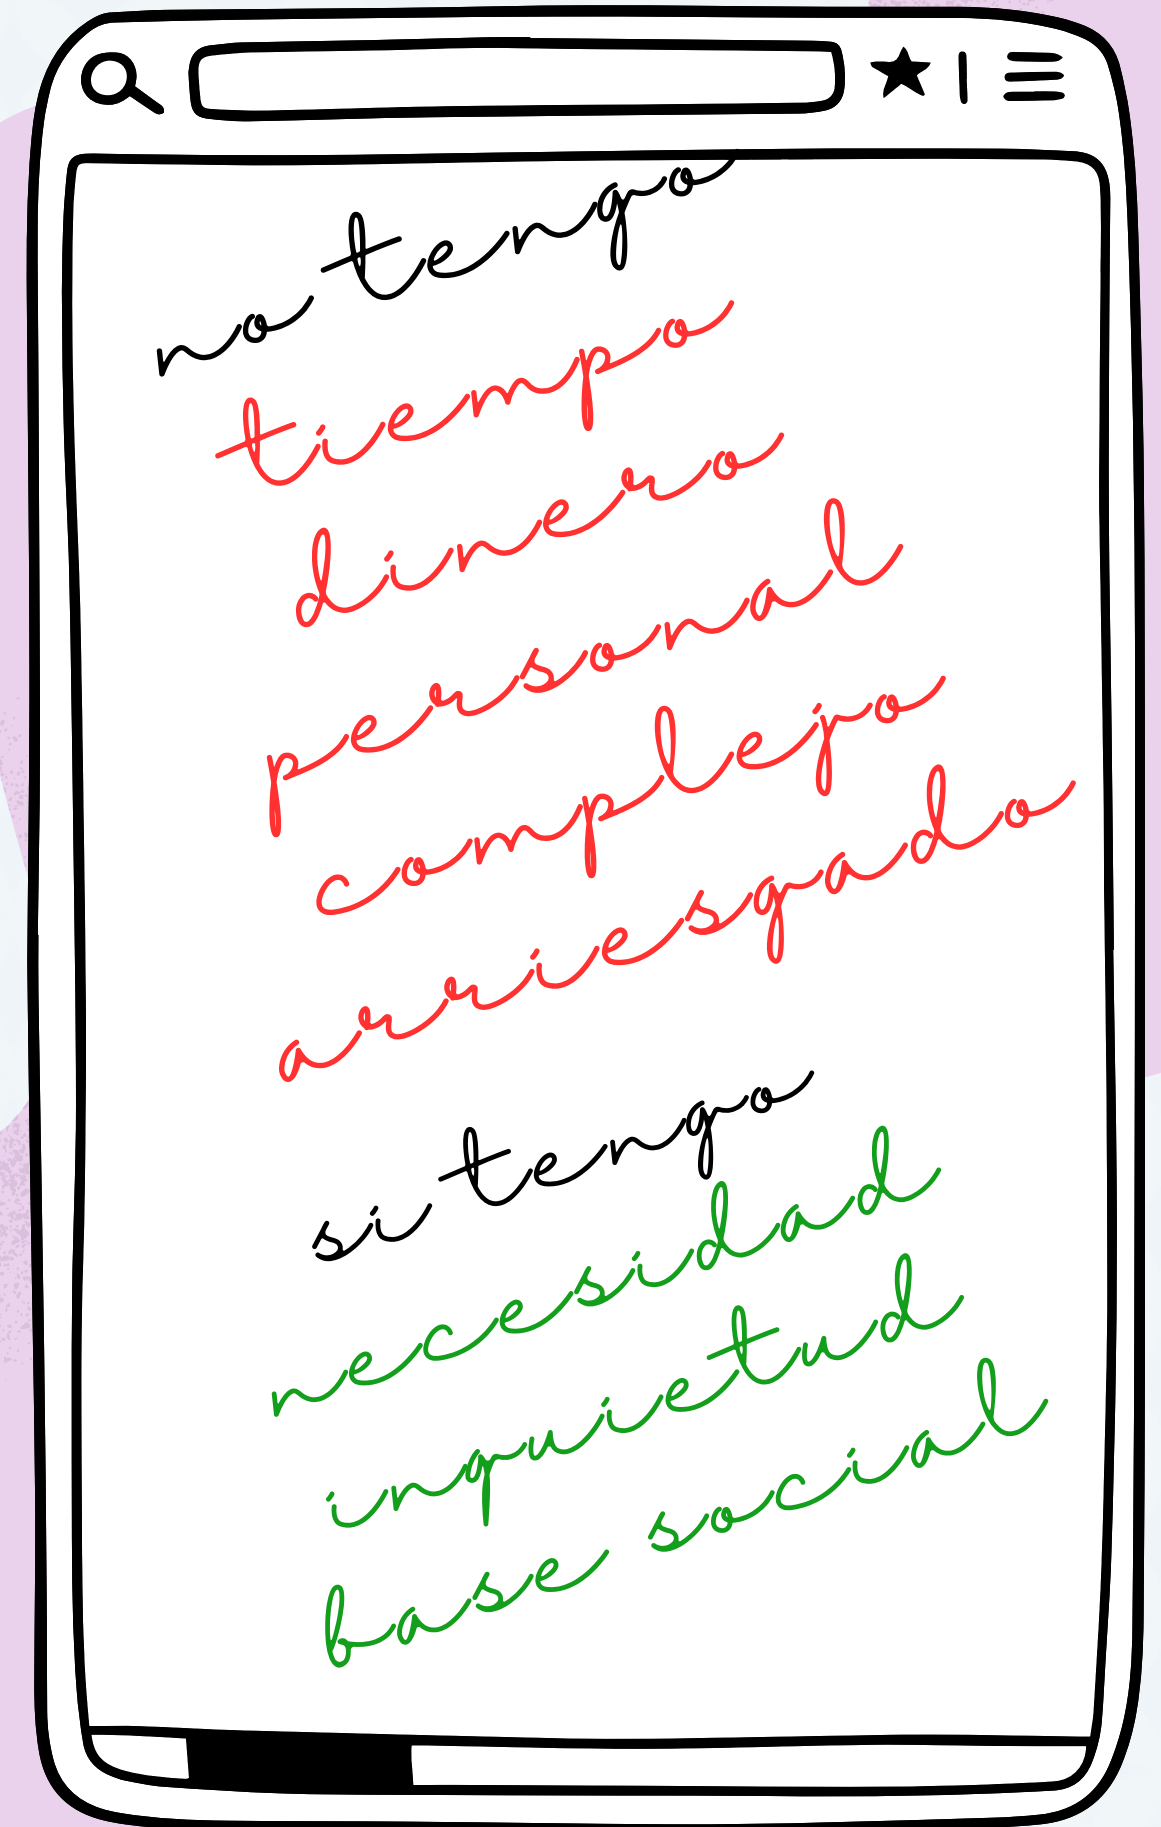 no tengo
tiempo
dinero
personal
complejo
arriesgado
si tengo
necesidad
inquietud
base social